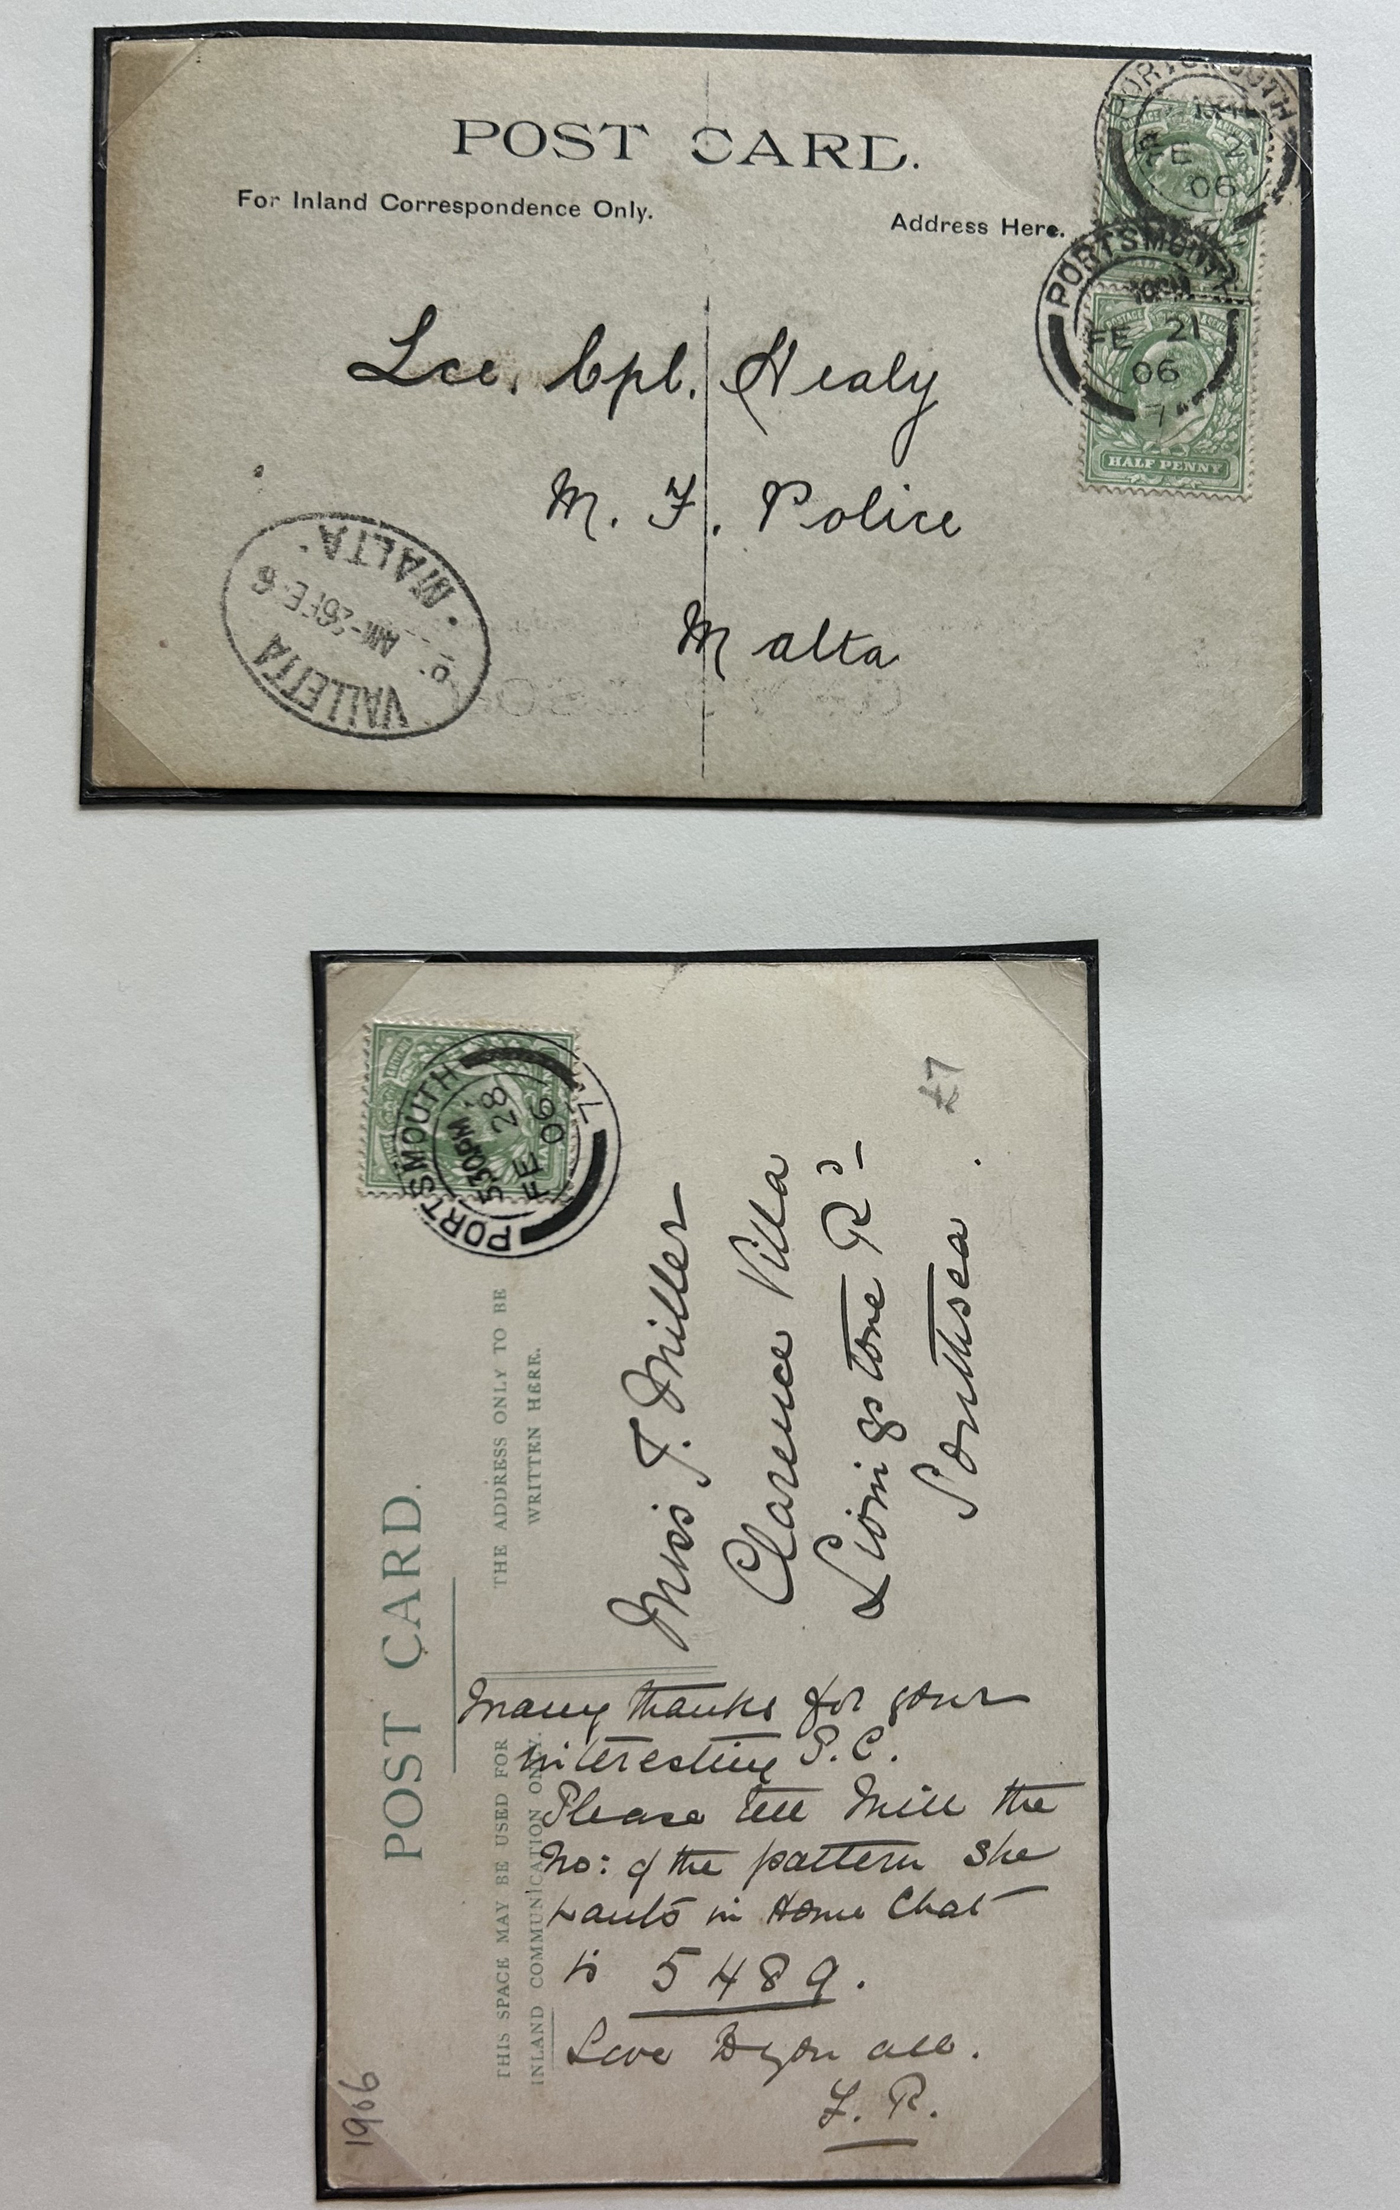 POST CARD.
For Inland Correspondence Only.
Address Here.
PORTSMOUTH
FE 21
06
7
PORTSMOUTH
FE 21
06
7
HALF PENNY
Lce. Cpl. Healy
M. F. Police
Malta
VALLETTA
AM-26FE-6
MALTA
POST CARD.
THIS SPACE MAY BE USED FOR
INLAND COMMUNICATION ONLY.
THE ADDRESS ONLY TO BE
WRITTEN HERE.
PORTSMOUTH
530PM
FE 28
06
7
Miss J. Miller
Clarence Villa
Livingstone Rd
Southsea
£7
Many thanks for your
interesting P.C.
Please tell Mill the
No: of the pattern she
wants in Home Chat
is 5489.
Love to you all.
F. R.
1906